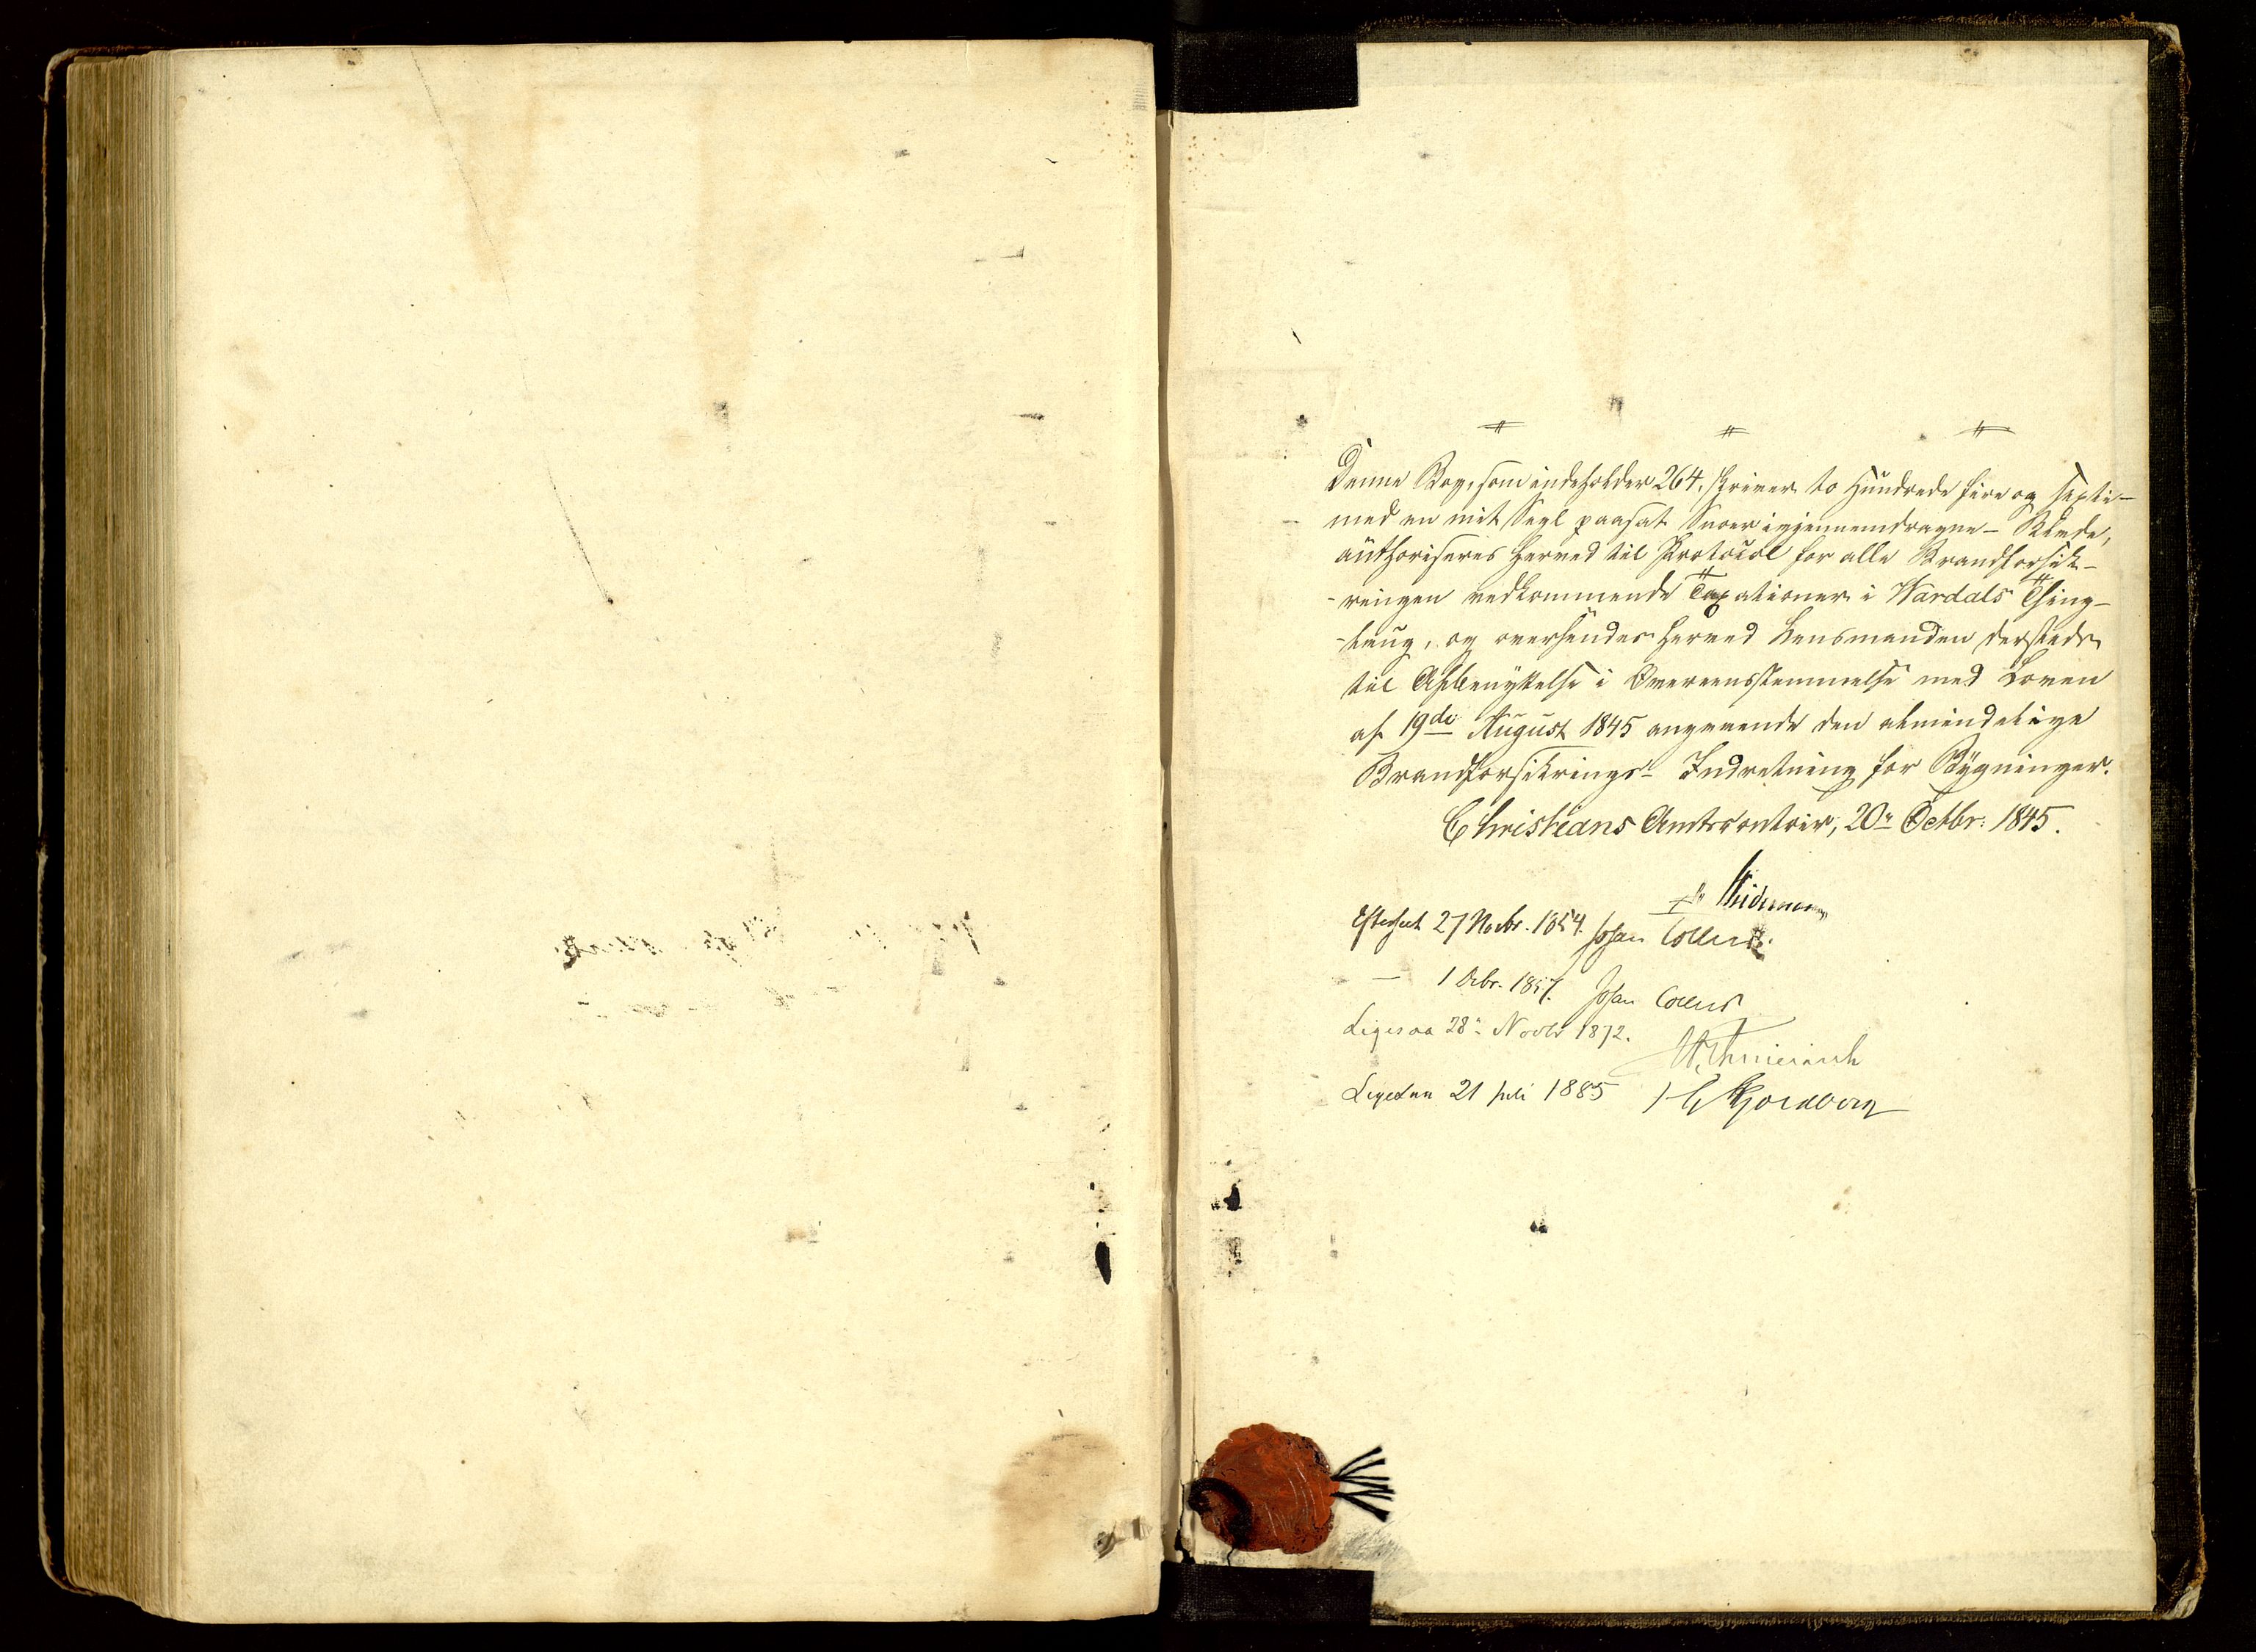 Denne Bog, som indeholder 264, skriver to Hundrede fire og sexti –
med en mit Segl paasat Snoer igjennemdragne – Blade,
authoriseres herved til Protocol for alle Brandforsik-
-ringen vedkommende Taxationer i Wardals Thing-
-laug, og oversendes herved Lensmanden dersteds
til Afbenyttelse i Overeensstemmelse med Loven
af 19de August 1845 angaaende den almindelige
Brandforsikrings- Indretning for Bygninger.
Christians Amtscontoir, 20de Octbr: 1845.
Efterseet 27 Novbr. 1854. Johan Collett
— 1 Octbr. 1857. Johan Collett
Ligesaa 28de Novbr 1872.
Ligesaa 21 Juli 1885